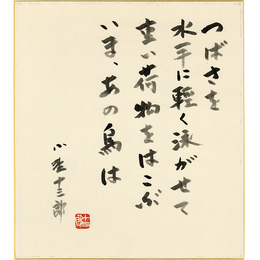 つばさを
水平に軽く泳がせて
重い荷物をはこぶ
いま、あの鳥は
小野十三郎